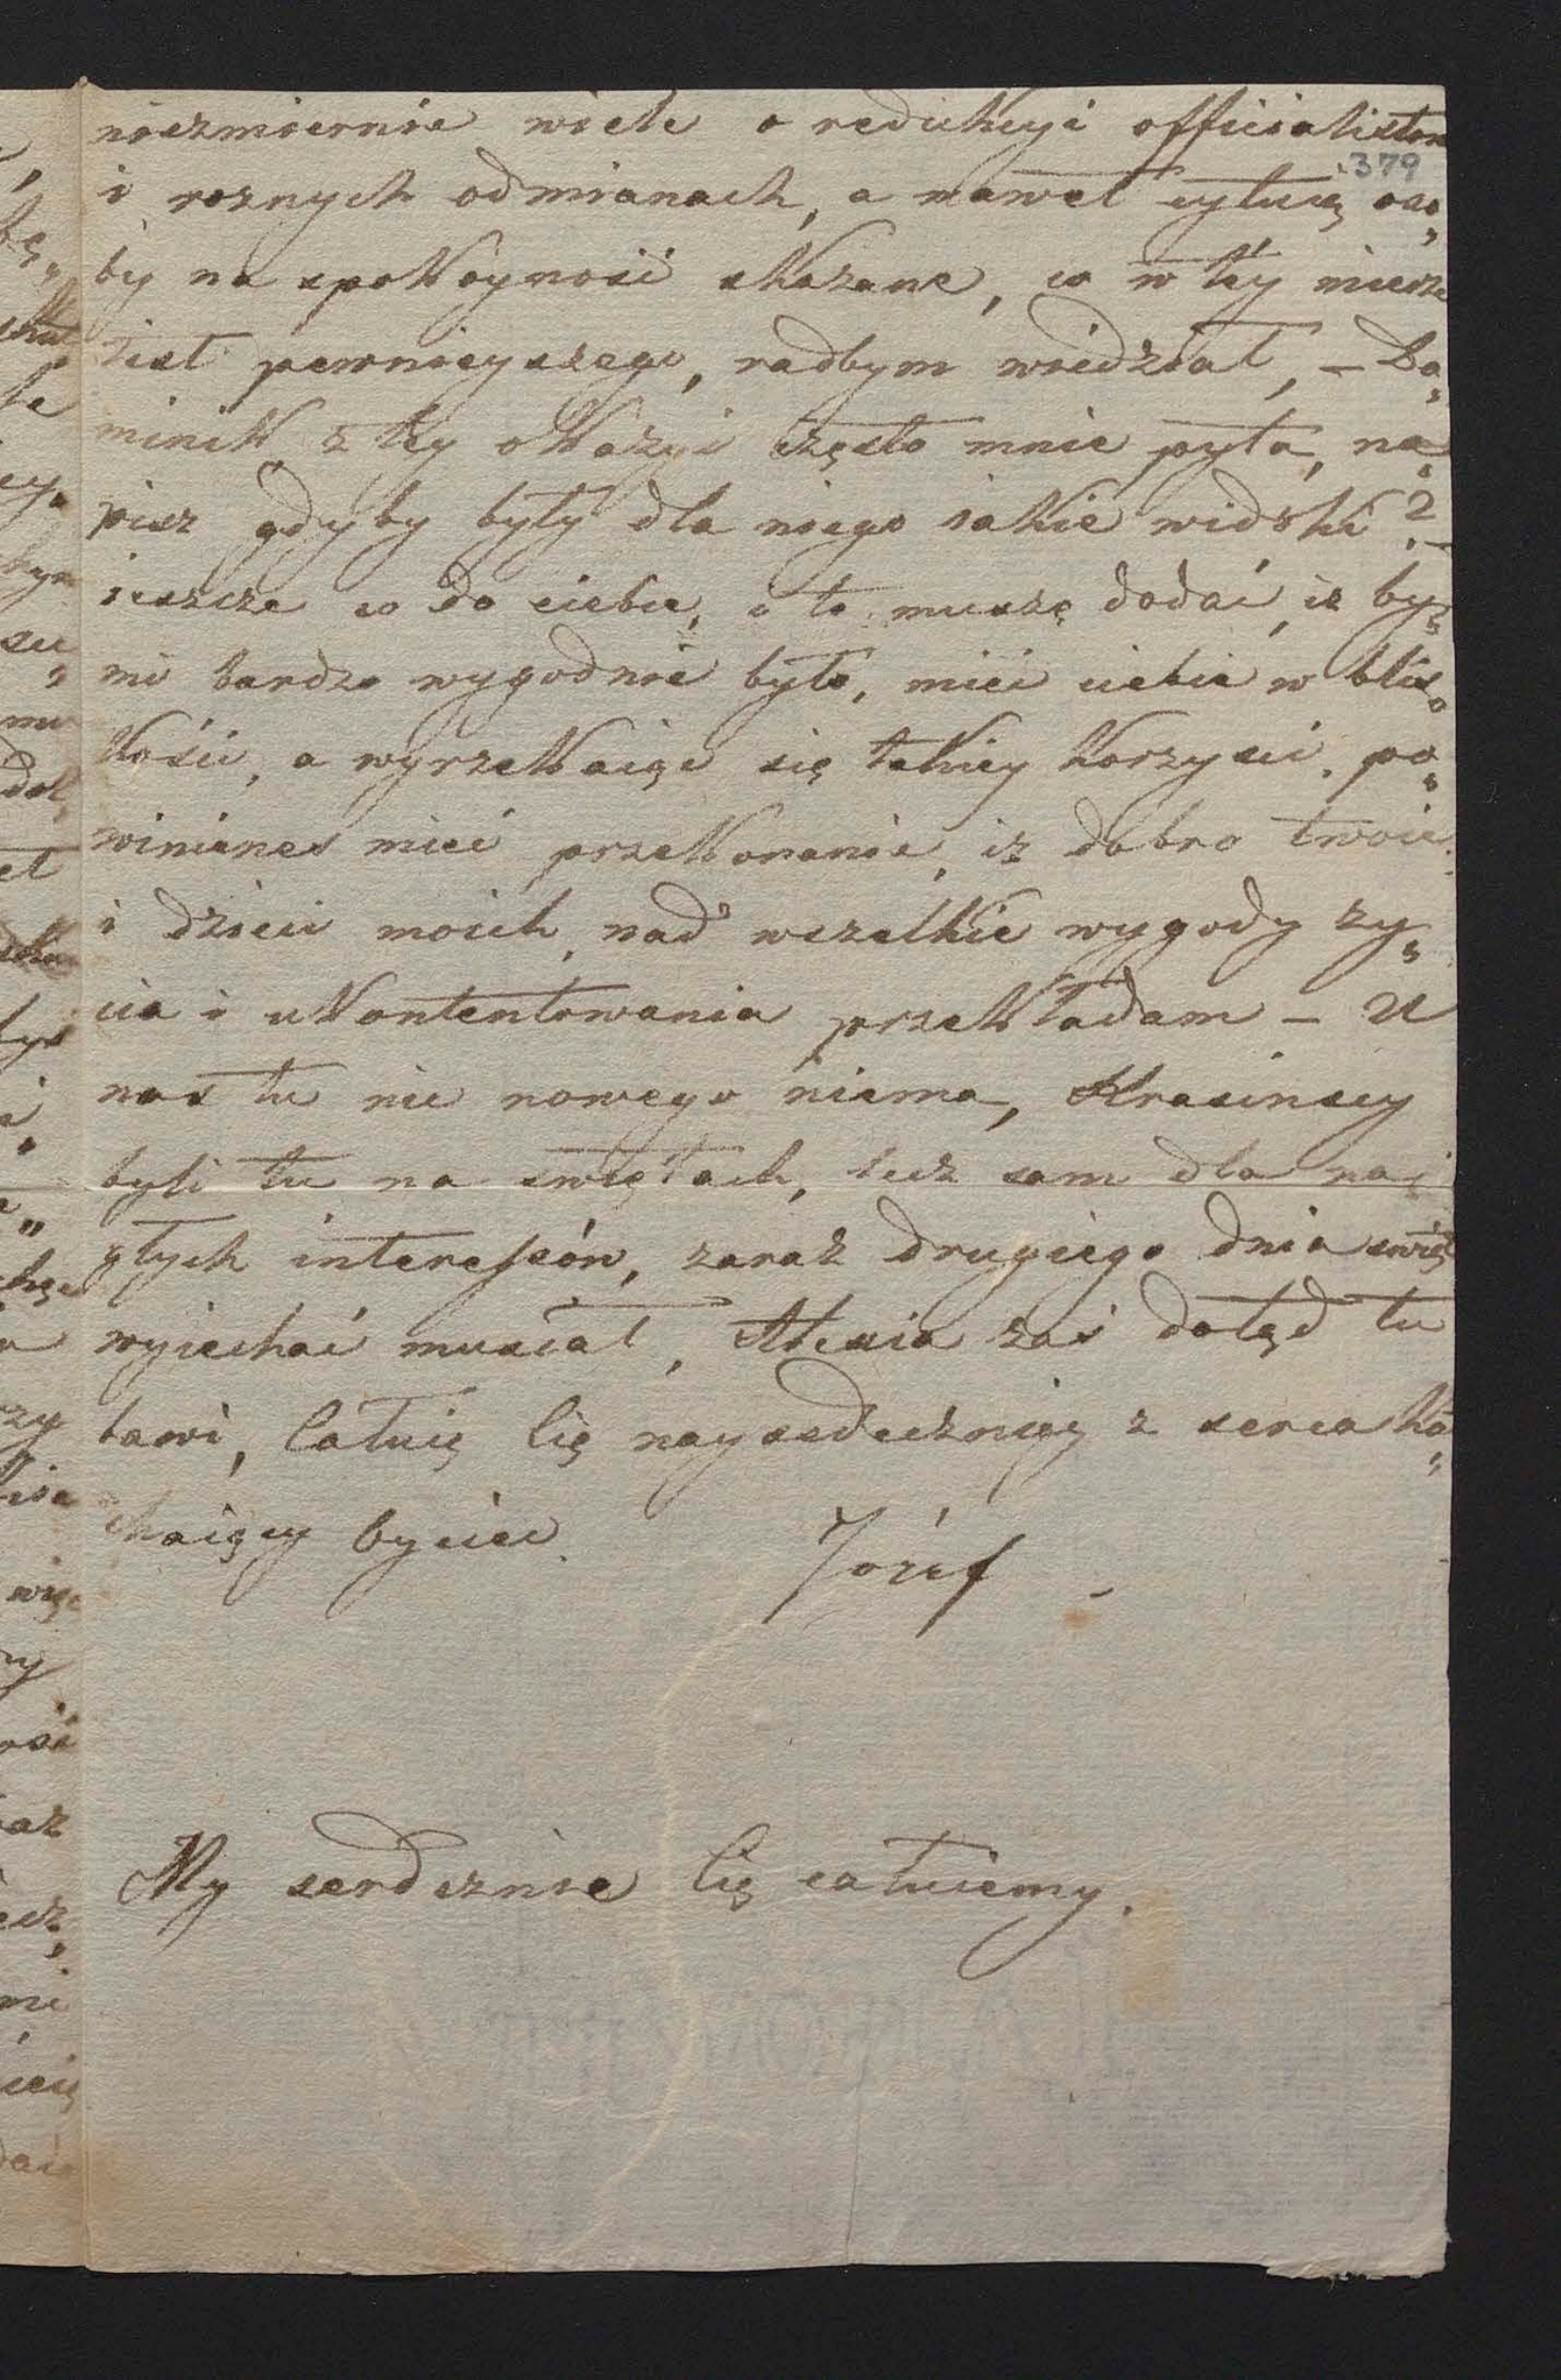 niezmiernie wiele o redukcyi officialistow
379
i roznych odmianach, a nawet cytuią oso„
by na spokoyność skazane, co w tey mierze
iest pewnieyszego, radbym wiedział, – Do„
minik z tey okazyi często mnie pyta, na„
pisz gdyby były dla niego iakie widoki? –
ieszcze co do ciebie, i to muszę dodać, iż by„
mi bardzo wygodnie było, mieć ciebie w blis„
kości, a wyrzekaiąc się takiey korzysci, po„
winienes mieć przekonanie, iż dobro twoie
i dzieci moich, nad wszelkie wygody ży„
cia i ukontentowania przekładam – U
nas tu nic nowego niema, Krasinscy
byli tu na swiętach, lecz sam dla na„
głych interessów, zaraz drugiego dnia swiąt
wyiechać musiał, Alexia zaś dotąd tu
bawi, Całuię Cię nayserdeczniey z serca ko„
chaiący byciec
Józef
My serdecznie Cię całuiemy.